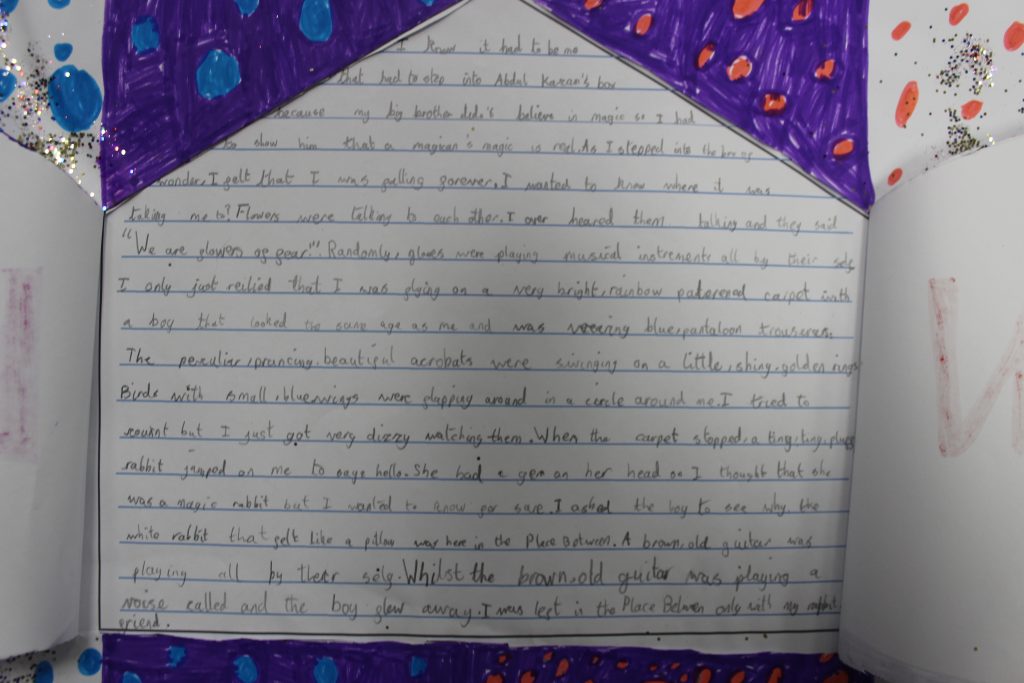 I know it had to be me
that had to step into Abdul Kazam's box
because my big brother didn's believe in magic so I had
to show him that a magican's magic is reel. As I stepped into the box of
wonder, I felt that I was falling forever. I wanted to know where it was
taking me to? Flowers were talking to each other. I over heared them talking and they said
"We are flowers of fear!" Randomly, gloves were playing musical instrements all by their self.
I only just reilied that I was flying on a very bright, rainbow paterened carpet with
a boy that looked the same age as me and was wearing blue, pantaloon trousers.
The peculiar, prancing, beautiful acrobats were swinging on a little, shiny, golden rings
Birds with small, blue wings were flapping around in a circle around me. I tried to
counkt but I just got very dizzy watching them. When the carpet stopped, a ting, ting,
rabbit jumped on me to saye hello. She had a gem on her head so I thought that she
was a magic rabbit but I wanted to know for sure. I asked the boy to see why the
white rabbit that felt like a pillow was here in the Place Between. A brown, old guitar was
playing all by their self. Whilst the brown, old guitar was playing a
voise called and the boy flew away. I was left in the Place Between only with my rabbit
friend.
N